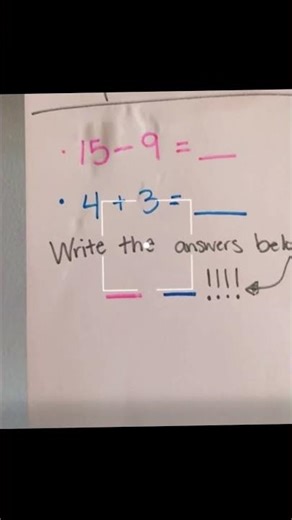 · 15 - 9 = __
· 4 + 3 = __
Write the answers
__ __ !!!!